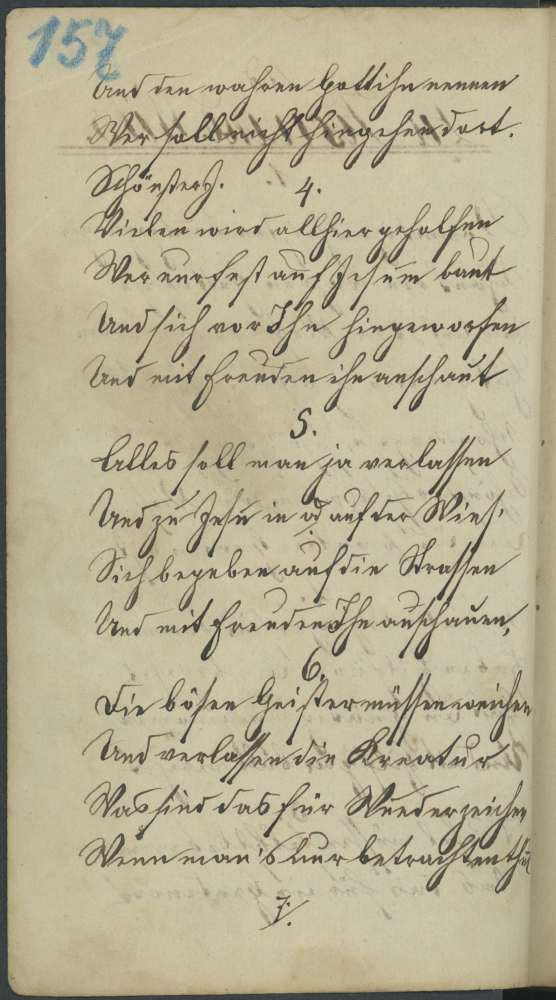 157
Und den wahren Gott ihn nennen
Wer soll nicht hingehen dort.
Schönster J.
4.
Vielen wird allhier geholfen
Wer nur fest auf Jesum baut
Und sich vor Ihn hingeworfen
Und mit Freuden ihn anschaut
5.
Alles soll man ja verlassen
Und zu Jesu in od auf der Wies'
Sich begeben auf die Strassen
Und mit Freuden Ihn anschauen,
6.
Die bösen Geister müssen weichen
Und verlassen die Kreatur
Was sind das für Wunderzeichen
Wenn man's nur betrachten thu
7.